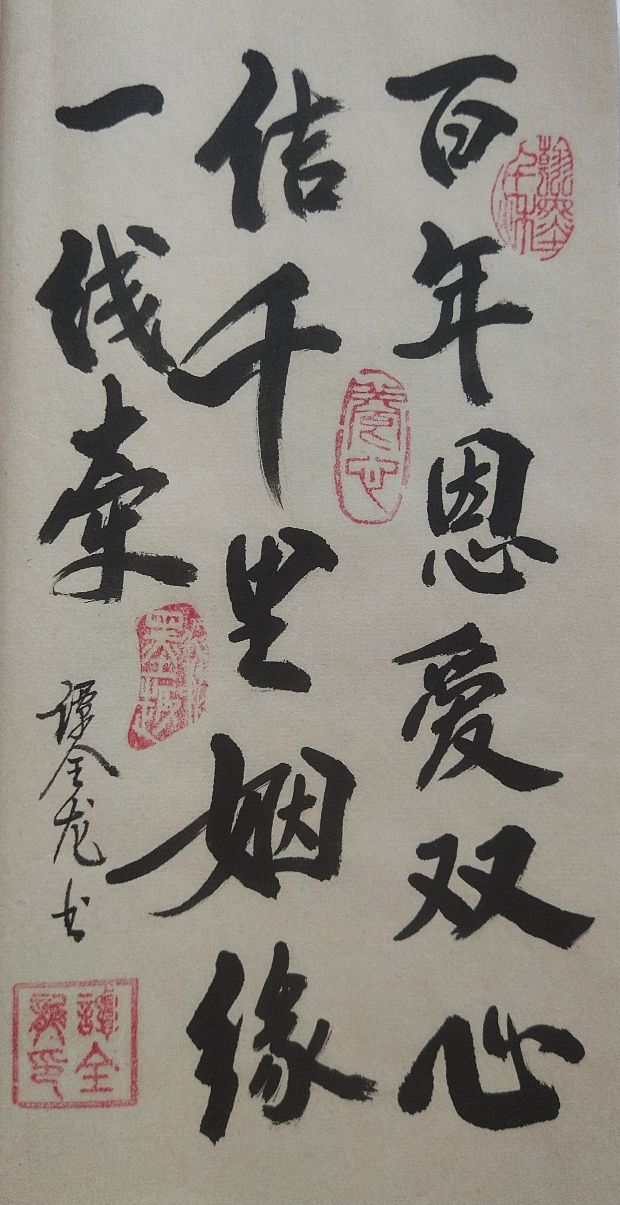 百年恩爱双心
结千里姻缘
一线牵
谭全龙书
譚全
龍印